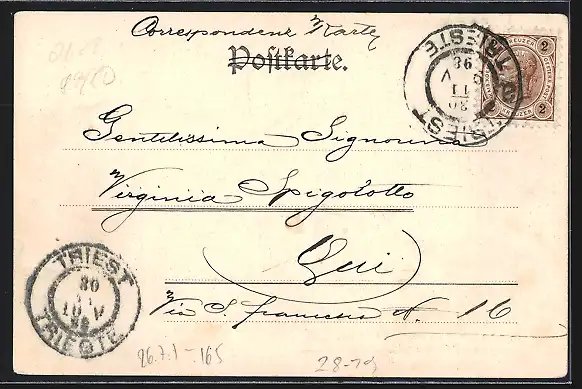 Correspondenz Karte
Postkarte.
TRIEST
TRIESTE
98
11
30
KREUZER
2
2
2
Gentilissima Signorina
Virginia Spigolotto
Qui
Via S. Francesco N. 16
TRIEST
80
10 V
98
TRIESTE
26.7.1-165
28-19